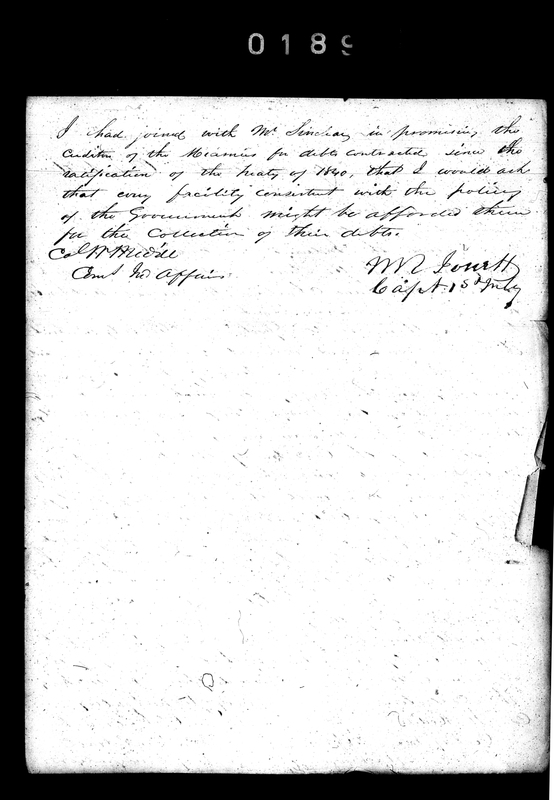 0189
I had joined with Mr Sinclear in promising the
creditors of the Miamies for debts contracted since the
ratification of the treaty of 1840, that I would ask
that every facility consistent with the policy
of the Government might be afforded them
for the Collection of their debts.
Col W Medill
Comr Ind Affairs
W R Jouett
Capt 1st Infy